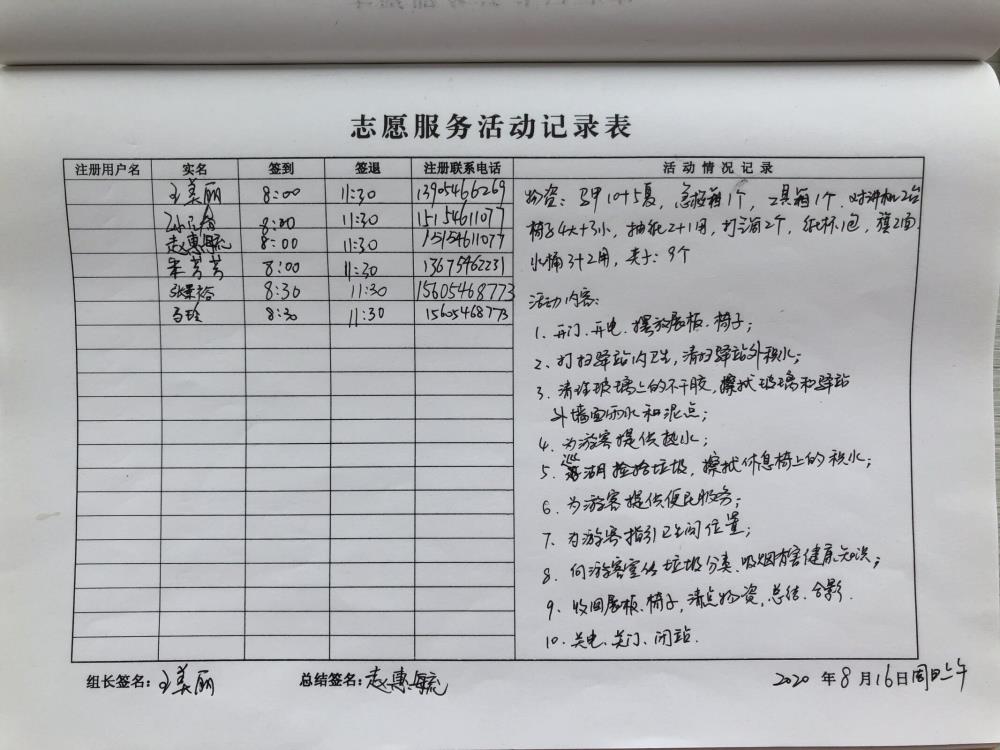 志愿服务活动记录表
注册用户名 实名 签到 签退 注册联系电话 活动情况记录
王美丽 8:00 11:30 13905466269
8:00 11:30 15154611077
赵惠毓 8:00 11:30 15154611077
朱芳芳 8:00 11:30 13675462231
张景裕 8:30 11:30 15605468773
马玲 8:30 11:30 15605468773
物资:马甲10+5夏,急救箱1个,工具箱1个,对讲机2台
椅子4大+3小,抽纸2+1用,打气筒2个,纸杯1包,旗2面
水桶3+2用,夹子:9个
活动内容:
1、开门、开电、摆放展板、椅子;
2、打扫驿站内卫生,清扫驿站外积水;
3、清理玻璃上的不干胶,擦拭玻璃和驿站
外墙面雨水和泥点;
4、为游客提供热水;
5、巡湖捡拾垃圾,擦拭休息椅上的积水;
6、为游客提供便民服务;
7、为游客指引卫生间位置;
8、向游客宣传垃圾分类、吸烟有害健康知识;
9、收回展板、椅子,清点物资,总结、合影.
10、关电、关门、闭站.
组长签名:王美丽 总结签名:赵惠毓 2020年8月16日周日上午